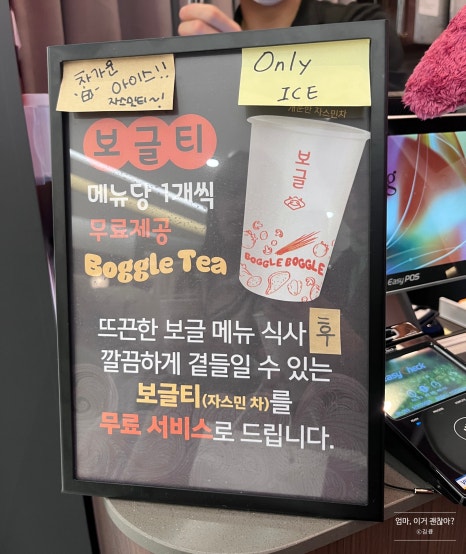 차가운
아이스!!
자스민티~!
Only
ICE
보글티
메뉴당 1개씩
무료제공
Boggle Tea
자스민차
보글
BOGGLE BOGGLE
뜨끈한 보글 메뉴 식사 후
깔끔하게 곁들일 수 있는
보글티(자스민 차)를
무료 서비스로 드립니다.
EasyPOS
easy check
엄마, 이거 괜찮아?